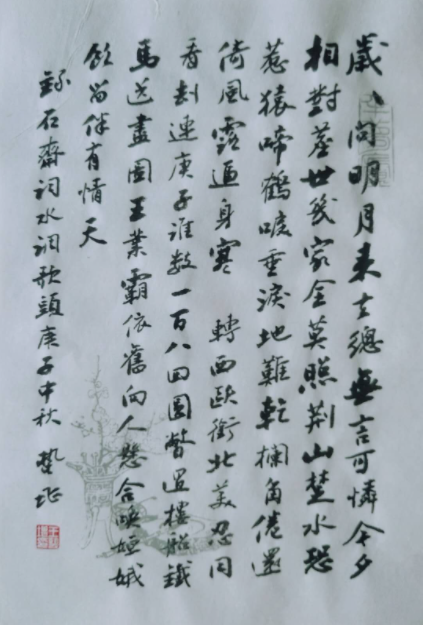 歲〻問明月來去總無言可憐今夕
相對世幾家全莫照荆山楚水恐
惹猿啼鶴唳垂淚地難乾欄角倦還
倚風露逼身寒 轉西歐銜北美忍同
看刦連庚子誰數一百八回圓瞥過樓船鐵
馬送盡圖王業霸依舊向人懸合喚姮娥
飲留伴有情天
錄石齋詞水調歌頭庚子中秋